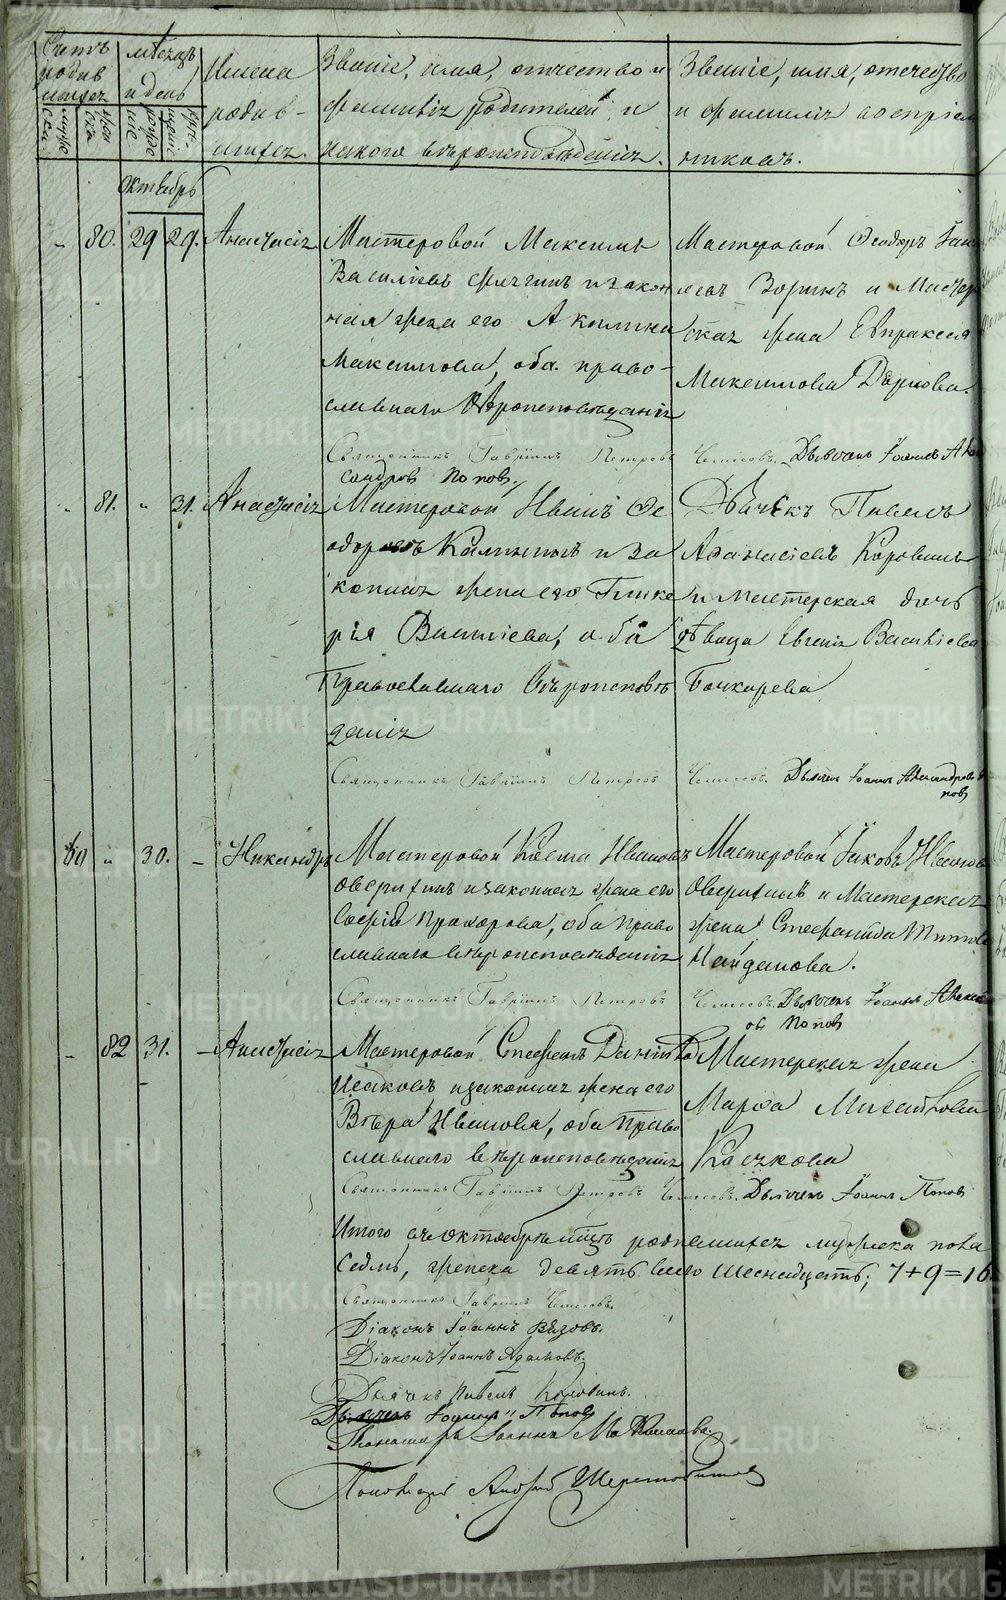 Счетъ родив шихся
мужеска
женска
мѣсяцъ и день
рожденіе
крещеніе
Имена родив- шихся.
Званіе, имя, отчество и
фамилія родителей, и
какого вѣроисповѣданія.
Званіе, имя, отчество
и фамилія воспріем
никовъ.
Октябрь
- 80. 29 29. Анастасія
Мастеровой Максимъ
Василіевъ и закон
ная жена его Акилина
Максимова, оба право-
славнаго вѣроисповѣданія
Мастеровой Ѳеодоръ
Зоринъ и Мастер
ская жена Евпраксея
Максимова
Священникъ Гавріилъ Петровъ Дьячекъ Іоаннъ Алек
сандровъ Поповъ.
" 81. " 31. Анастасія
Мастеровой Иванъ Ѳе
одоровъ Калининъ и за
конная жена его Глике
рія Василіева, оба
Православнаго Вѣроисповѣ
данія
Дьячекъ Павелъ
Аѳанасіевъ Коровинъ
и Мастерская дочь
дѣвица Евгенія Василіева
Бочкарева
Священникъ Гавріилъ Петровъ Дьячекъ Іоаннъ Александровъ
повъ
60 " 30. - Никандръ
Мастеровой Косма Ивановъ
Оверихинъ и законная жена его
Софія Прохорова, оба право
славнаго вѣроисповѣданія
Мастеровой Іаковъ Ивановъ
Оверихинъ и Мастерская
жена Стефанида Титова
Найданова.
Священникъ Гавріилъ Петровъ Дьячекъ Іоаннъ Алекс
ов Поповъ
- 82 31. - Анастасія
Мастеровой Стефанъ Даніило
Исаковъ и законная жена его
Вѣра Иванова, оба Право
славнаго вѣроисповѣданія
Мастерская жена
Марѳа Михайлова
Священникъ Гавріилъ Петровъ Дьячекъ Іоаннъ Поповъ
Итого въ октябрѣ мѣсяцѣ родившихся мужеска пола
седмь, женска девять всего шеснадцать; 7+9=16
Священникъ Гавріилъ
Діаконъ Іоаннъ Вязовъ.
Діаконъ Іоаннъ Адамовъ.
Дьячекъ Павелъ Коровинъ.
Дьячекъ Іоаннъ Поповъ
Пономарь Іоаннъ
Пономарь Андрей
METRIKI.GASO-URAL.RU